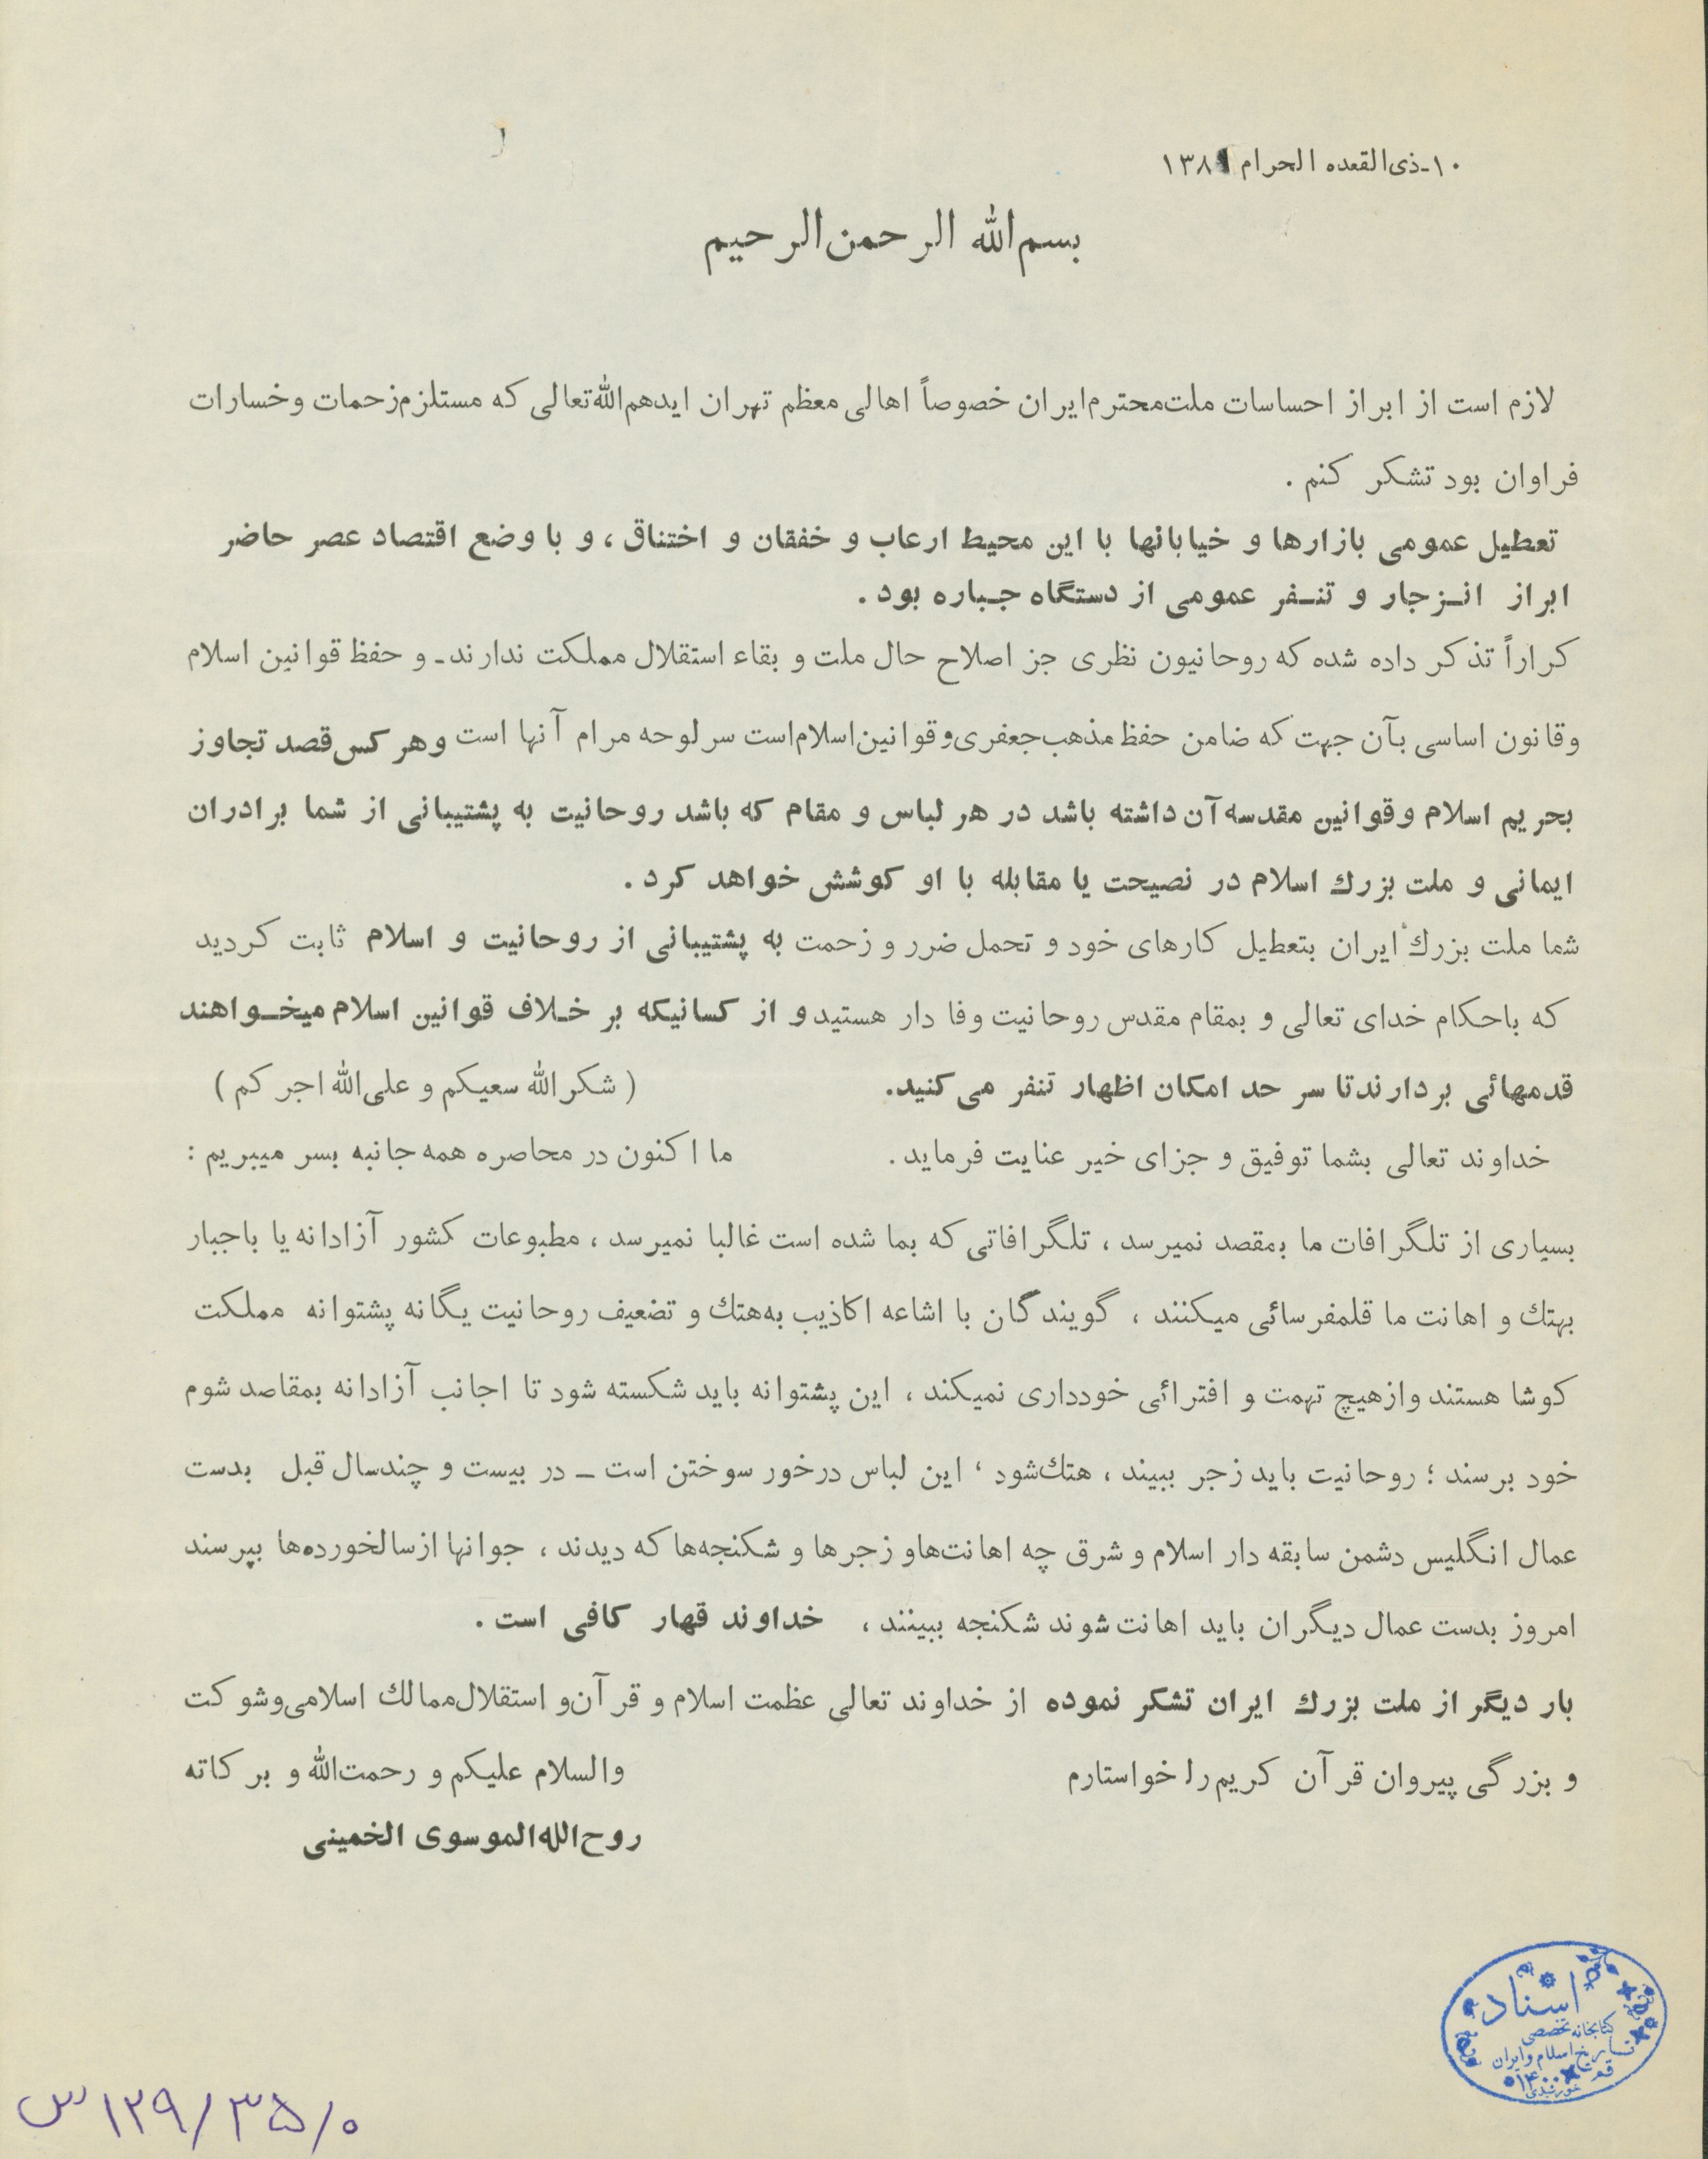 ۱۰-ذی‌القعده الحرام ۱۳۸۱
بسم‌الله الرحمن‌الرحیم
لازم است از ابراز احساسات ملت‌محترم‌ایران خصوصاً اهالی معظم تهران ایدهم‌الله‌تعالی که مستلزم‌زحمات وخسارات
فراوان بود تشکر کنم .
تعطیل عمومی بازارها و خیابانها با این محیط ارعاب و خفقان و اختناق ، و با وضع اقتصاد عصر حاضر
ابراز انـزجار و تنـفر عمومی از دستگاه جـباره بود .
کراراً تذکر داده شده که روحانیون نظری جز اصلاح حال ملت و بقاء استقلال مملکت ندارند- و حفظ قوانین اسلام
وقانون اساسی بآن جهت که ضامن حفظ مذهب‌جعفری‌وقوانین‌اسلام‌است سرلوحه مرام آنها است وهرکس‌قصد تجاوز
بحریم اسلام وقوانین مقدسه‌آن داشته باشد در هر لباس و مقام که باشد روحانیت به پشتیبانی از شما برادران
ایمانی و ملت بزرك اسلام در نصیحت یا مقابله با او کوشش خواهد کرد .
شما ملت بزرك ایران بتعطیل کارهای خود و تحمل ضرر و زحمت به پشتیبانی از روحانیت و اسلام ثابت کردید
که باحکام خدای تعالی و بمقام مقدس روحانیت وفا دار هستید و از کسانیکه بر خـلاف قوانین اسلام میخـواهند
قدمهائی بردارندتا سر حد امکان اظهار تنفر می‌کنید. ( شکرالله سعیکم و علی‌الله اجرکم )
خداوند تعالی بشما توفیق و جزای خیر عنایت فرماید . ما اکنون در محاصره همه جانبه بسر میبریم :
بسیاری از تلگرافات ما بمقصد نمیرسد ، تلگرافاتی که بما شده است غالبا نمیرسد ، مطبوعات کشور آزادانه یا باجبار
بهتك و اهانت ما قلمفرسائی میکنند ، گویندگان با اشاعه اکاذیب به‌هتك و تضعیف روحانیت یگانه پشتوانه مملکت
کوشا هستند وازهیچ تهمت و افترائی خودداری نمیکند ، این پشتوانه باید شکسته شود تا اجانب آزادانه بمقاصد شوم
خود برسند ؛ روحانیت باید زجر ببیند ، هتك‌شود ، این لباس درخور سوختن است ـ در بیست و چندسال قبل بدست
عمال انگلیس دشمن سابقه دار اسلام و شرق چه اهانت‌هاو زجرها و شکنجه‌ها که دیدند ، جوانها ازسالخورده‌ها بپرسند
امروز بدست عمال دیگران باید اهانت شوند شکنجه ببینند ، خداوند قهار کافی است .
بار دیگر از ملت بزرك ایران تشکر نموده از خداوند تعالی عظمت اسلام و قرآن‌و استقلال‌ممالك اسلامی‌وشوکت
و بزرگی پیروان قرآن کریم‌را خواستارم والسلام علیکم و رحمت‌الله و برکاته
روح‌الله‌الموسوی الخمینی
اسناد
کتابخانه تخصصی
تاریخ اسلام و ایران
قم
۱۴۰۰
۱۲۹/۳۵/۰ س